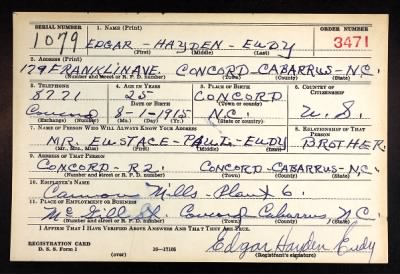 SERIAL NUMBER 1. NAME (Print) ORDER NUMBER
1079 EDGAR - HAYDEN - EUDY 3471
(First) (Middle) (Last)
2. ADDRESS (Print)
129 FRANKLIN AVE. CONCORD - CABARRUS - N.C.
(Number and street or R. F. D. number) (Town) (County) (State)
3. TELEPHONE 4. AGE IN YEARS 5. PLACE OF BIRTH 6. COUNTRY OF CITIZENSHIP
8721 25 CONCORD
DATE OF BIRTH (Town or county)
Concord 8-1-1915 N.C. U.S.
(Exchange) (Number) (Mo.) (Day) (Yr.) (State or country)
7. NAME OF PERSON WHO WILL ALWAYS KNOW YOUR ADDRESS 8. RELATIONSHIP OF THAT PERSON
MR. EUSTACE - PAUL - EUDY BROTHER
(Mr., Mrs., Miss) (First) (Middle) (Last)
9. ADDRESS OF THAT PERSON
CONCORD - R2. CONCORD - CABARRUS - N.C.
(Number and street or R. F. D. number) (Town) (County) (State)
10. EMPLOYER'S NAME
Cannon Mills - Plant 6.
11. PLACE OF EMPLOYMENT OR BUSINESS
McGill St. Concord Cabarrus, N.C.
(Number and street or R. F. D. number) (Town) (County) (State)
I AFFIRM THAT I HAVE VERIFIED ABOVE ANSWERS AND THAT THEY ARE TRUE.
REGISTRATION CARD
D. S. S. Form 1 16—17105 Edgar Hayden Eudy
(over) (Registrant's signature)